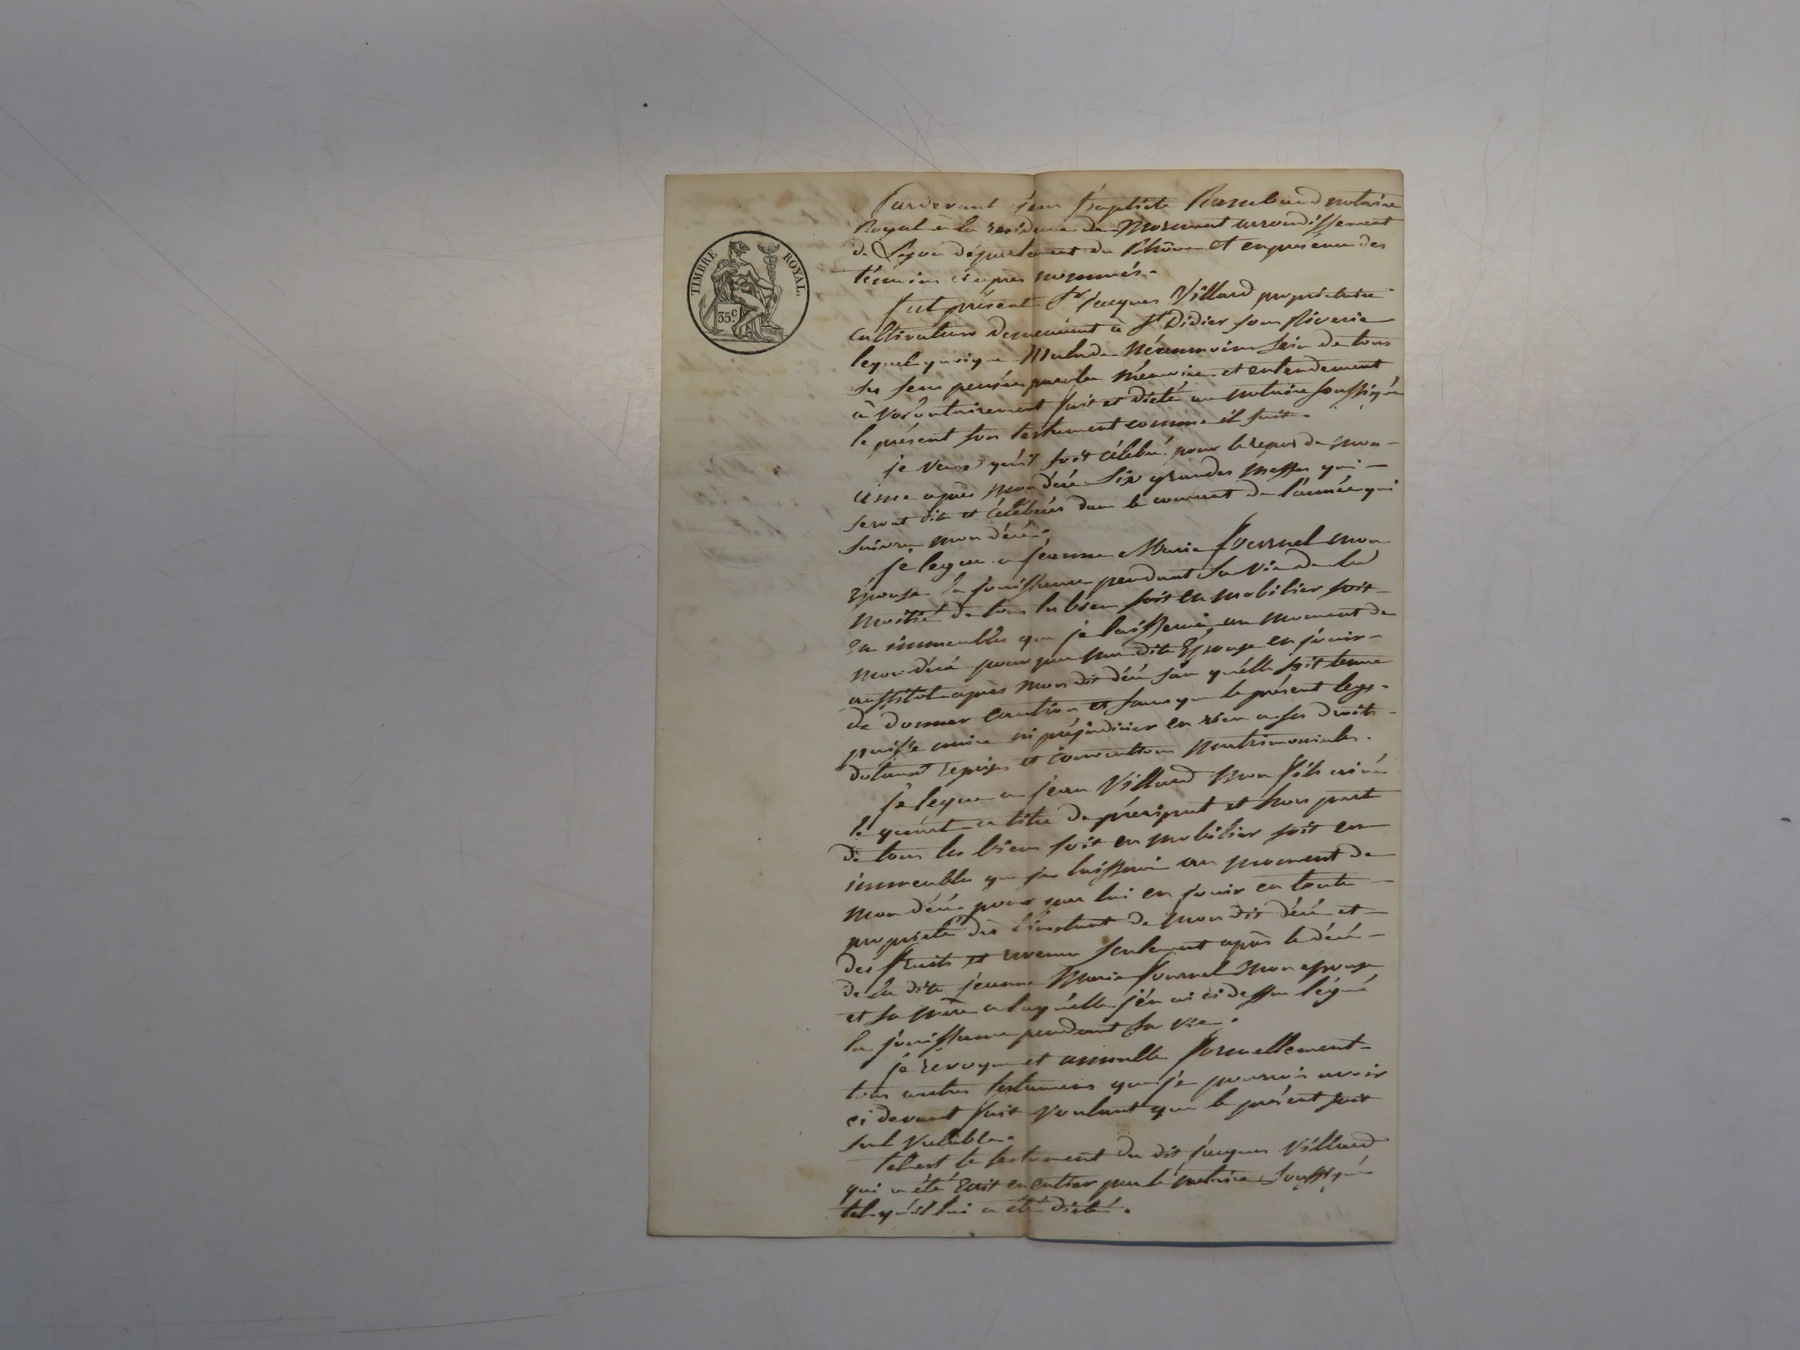 TIMBRE ROYAL.
35c
Pardevant jean Baptiste Rambaud notaire
Royal à la residence de Mornant arrondissement
de Lyon département du Rhône et en présence des
témoins ci après nommés.
fut présent Sr jacques Villard propriétaire
cultivateur demeurant à St Didier sous Riverie
lequel quoique Malade Néanmoins sain de tous
ses sens pensée parole Mémoire et entendement
à volontairement fait et dicté au notaire soussigné
le présent son testament comme il suit.
je veux qu'il soit célébré pour le repos de mon
ame après mon décé six grandes Messes qui
seront dite et célébrés dans le courant de l'année qui
suivra mon décé.
je legue a jeanne Marie fournel mon
Epouse la jouissance pendant sa vie de la
moitié de tous les biens soit en mobilier soit
en immeubles que je laisserai au moment de
mon décé pour par ma dite Epouse en jouir
aussitot après mon dit décé sans qu'elle soit tenue
de donner caution et sans que le présent legs
puisse nuire ni préjudicier en rien a ses droits
dotaux reprises et conventions matrimoniales.
je legue a jean Villard mon fils ainé
le quart a titre de préciput et hors part
de tous les biens soit en mobilier soit en
immeubles que je laisserai au moment de
mon décé pour par lui en jouir en toute
propriété dès l'instant de mon dit décé et
des fruits et revenu seulement après le décé
de la dite jeanne Marie fournel mon epouse
et sa mère a laquelle j'en ai ci dessus légué
la jouissance pendant sa vie.
je révoque et annulle formellement
tous autres testamens que je pourrois avoir
ci devant fait voulant que le présent soit
seul valable.
tel est le testament du dit jacques Villard
qui a été Ecrit en entier par le notaire soussigné
tel qu'il lui a été dicté.